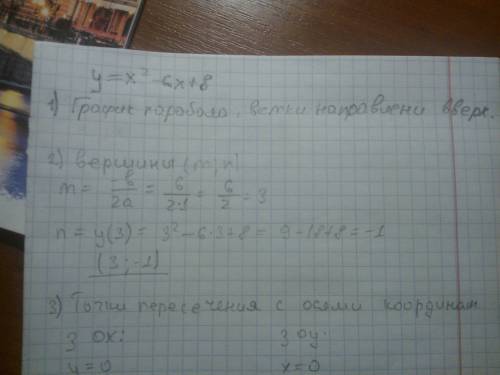 y = x² - 6x + 8
1) График парабола, ветки направлени вверх.
2) вершины (m; n)
m = -b/2a = 6/2·1 = 6/2 = 3
n = y(3) = 3² - 6·3 + 8 = 9 - 18 + 8 = -1
(3; -1)
3) Точки пересечения с осями координат
З ОХ: З ОУ:
y = 0 x = 0